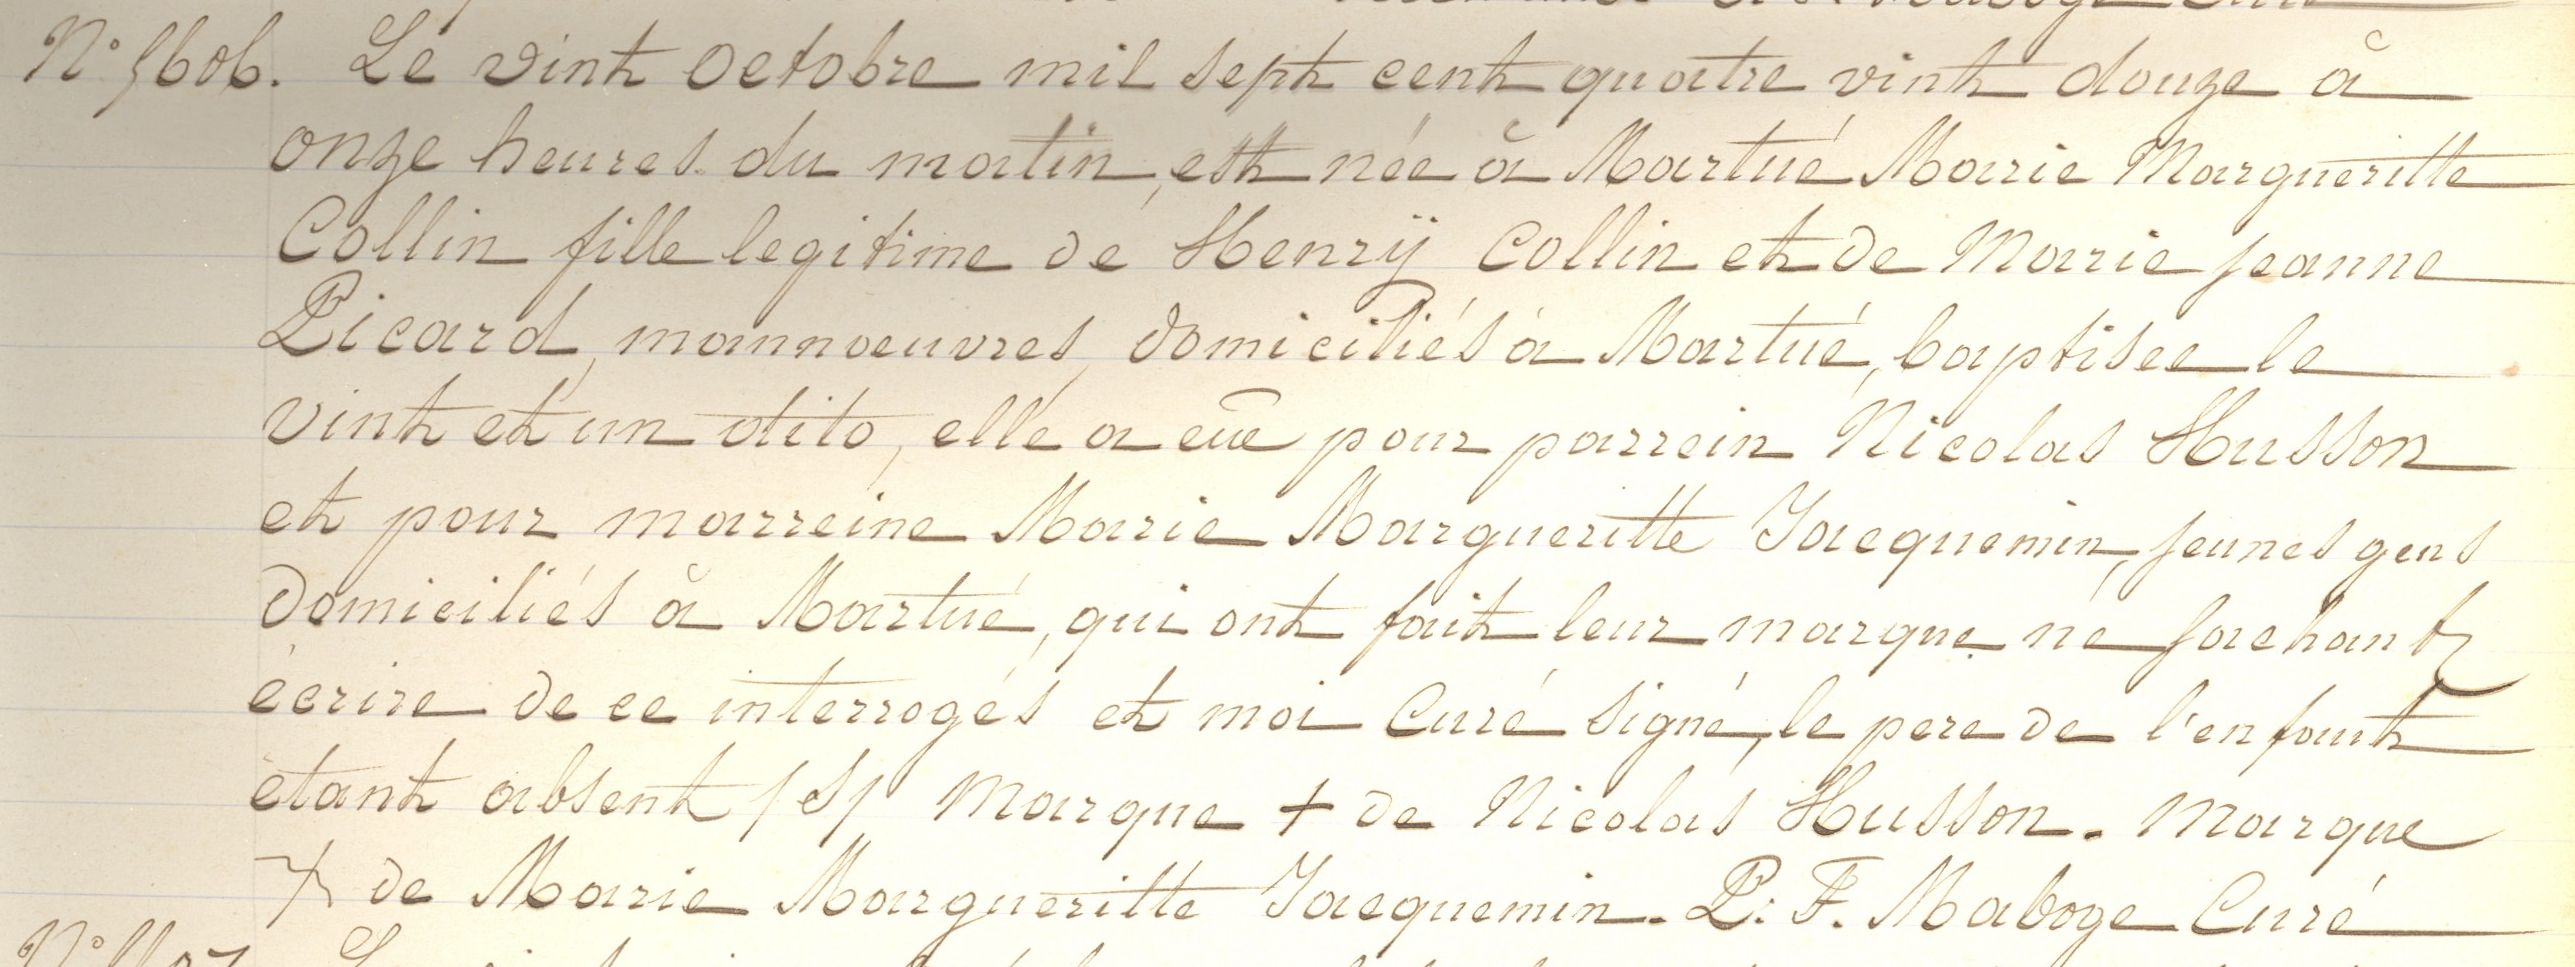 N° 1606. Le vint octobre mil sept cent quatre vint douze à
onze heures du matin, est née à Martué Marie Margueritte
Collin fille legitime de Henrÿ Collin et de Marie Jeanne
Picard, mannoeuvres, domiciliés à Martué, baptisee le
vint et un dito, elle a eüe pour parrein Nicolas Husson
et pour marreine Marie Margueritte Jacquemin, jeunes gens
domiciliés à Martué, qui ont fait leur marque ne sachant
écrire de ce interrogés et moi Curé signé, le pere de l'enfant
étant absent /S/ Marque + de Nicolas Husson. Marque
+ de Marie Margueritte Jacquemin. P. F. Maboge Curé